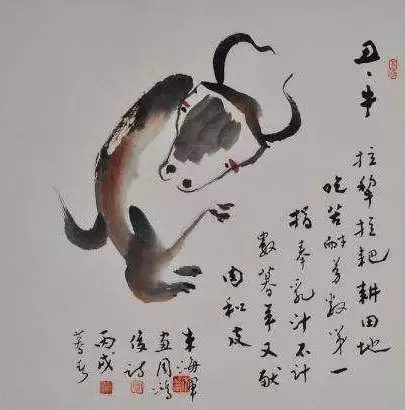 丑、牛
拉犁拉耙耕田地
吃苦耐劳数第一
捐奉乳汁不计
数暮年又献
肉和皮
朱海
画周鸿
俊诗
丙戌
暮春